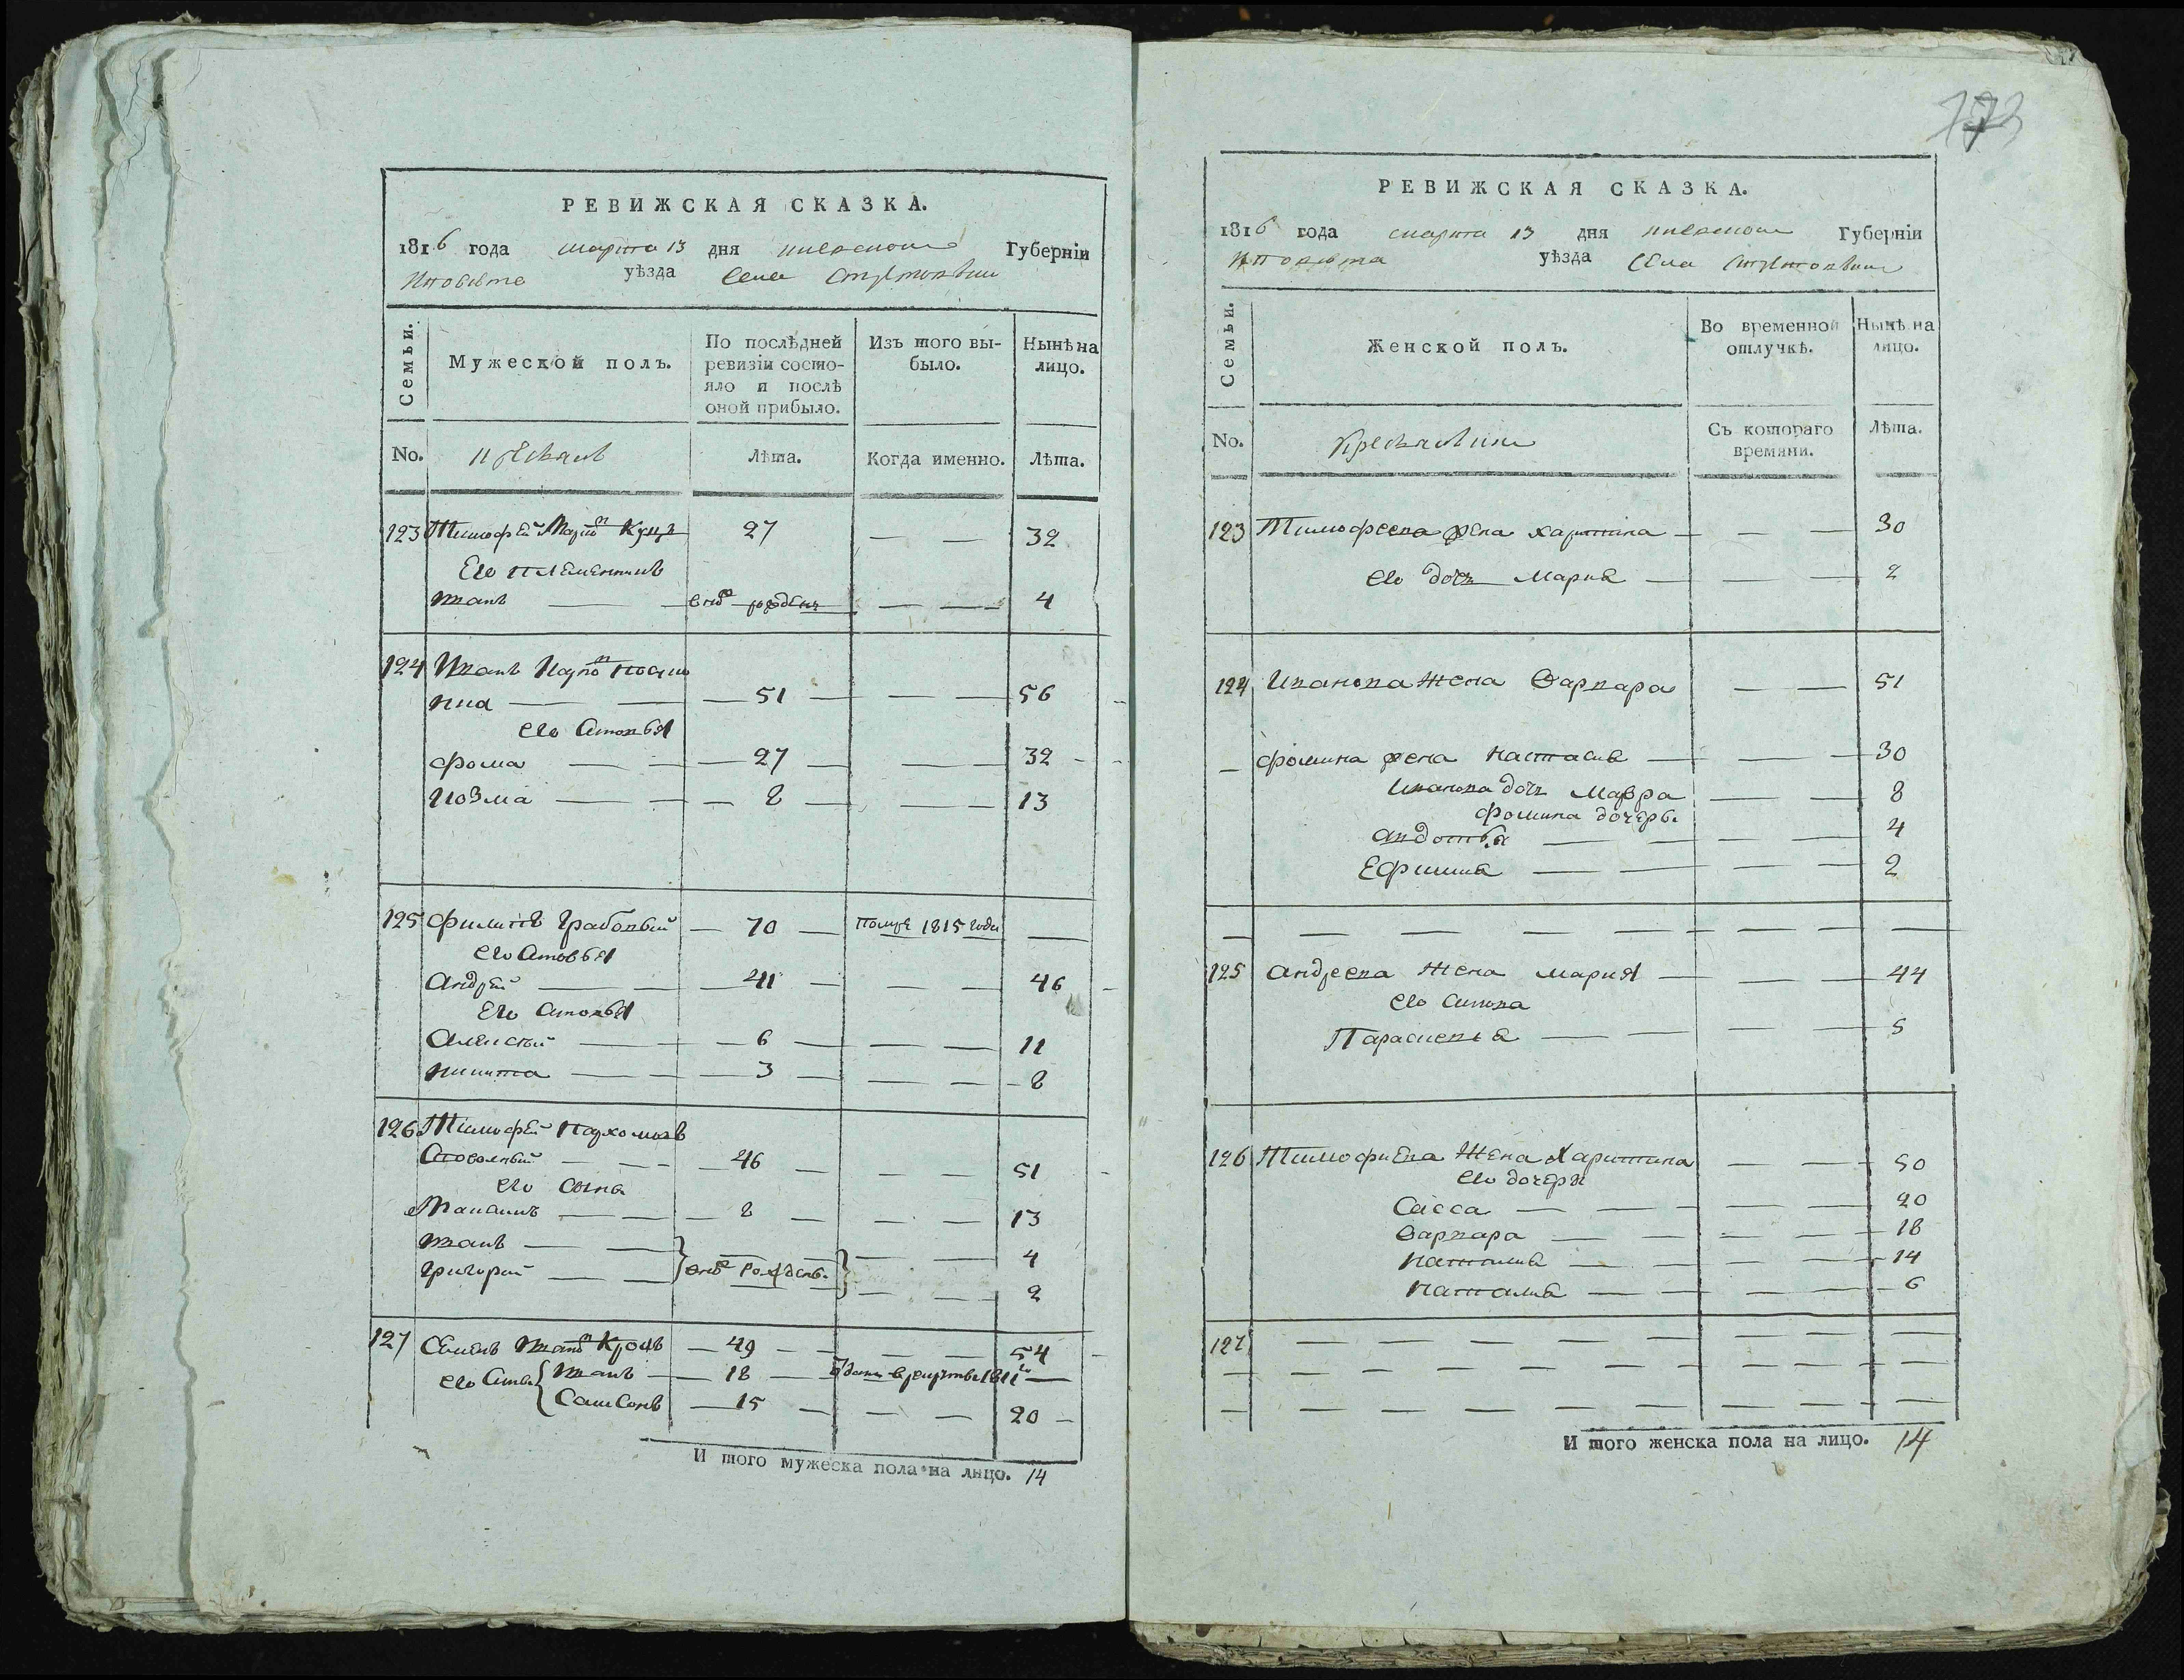 РЕВИЖСКАЯ СКАЗКА.
1816 года марта 13 дня Киевской Губерніи
уѣзда Села
Семьи.
Мужеской полъ.
По послѣдней ревизіи состояло и послѣ оной прибыло.
Изъ того выбыло.
Нынѣ на лицо.
No.
Лѣта.
Когда именно.
Лѣта.
123 Тимофей 27 — — 32
Его племенникъ
Иванъ — — рожденъ — — 4
124 Иванъ
— — 51 — — — 56
его Сыновья
Фома — — — 27 — — — 32
Козма — — — 8 — — — 13
125 Филипъ Грабовый — 70 — помре 1815 года —
его Сыновья
Андрей — — — 41 — — — 46
Его Сыновья
Алексѣй — — — 6 — — — 11
Никита — — — 3 — — — 8
126 Тимофей Пархомовъ
— — — 46 — — — 51
его Сына
— — — 8 — — — 13
Иванъ — — — — 4
Григорий — — рожденъ — — 2
127 Семенъ — 49 — — — 54
его Сына Иванъ — 18 — 1811 —
Самсонъ — 15 — — — 20
И того мужеска пола на лицо. 14
РЕВИЖСКАЯ СКАЗКА.
1816 года марта 13 дня Киевской Губерніи
уѣзда Села
Семьи.
Женской полъ.
Во временной отлучкѣ.
Нынѣ на лицо.
No.
Съ котораго времяни.
Лѣта.
123 Тимофеева жена Харитина — — — 30
его дочъ Мария — — — 2
124 Иванова жена Варвара — — 51
— Фомина жена Настасия — — — 30
Иванова дочъ Мавра — — 8
Фомина дочеры
Авдотья — — — — 4
Ефимия — — — — 2
— — — — — — — — —
125 Андреева жена Мария — — — 44
его Сынова
Параскевья — — — — 5
126 Тимофиева жена Харитина — — 50
его дочери
— — — — 20
Варвара — — — — 18
— — — — 14
Наталия — — — — 6
127 — — — — — — — —
— — — — — — — — —
— — — — — — — — —
И того женска пола на лицо. 14